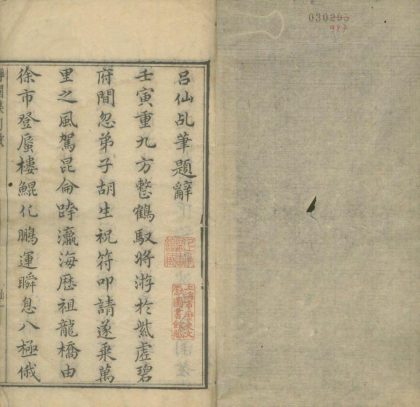 030295
吕仙乩筆題辭
壬寅重九方整鶴馭將游於紫虛碧
府間忽弟子胡生祝符叩請遂乘萬
里之風駕昆侖跨瀛海歷祖龍橋由
徐市登蜃樓鯤化鵬運瞬息八極俄